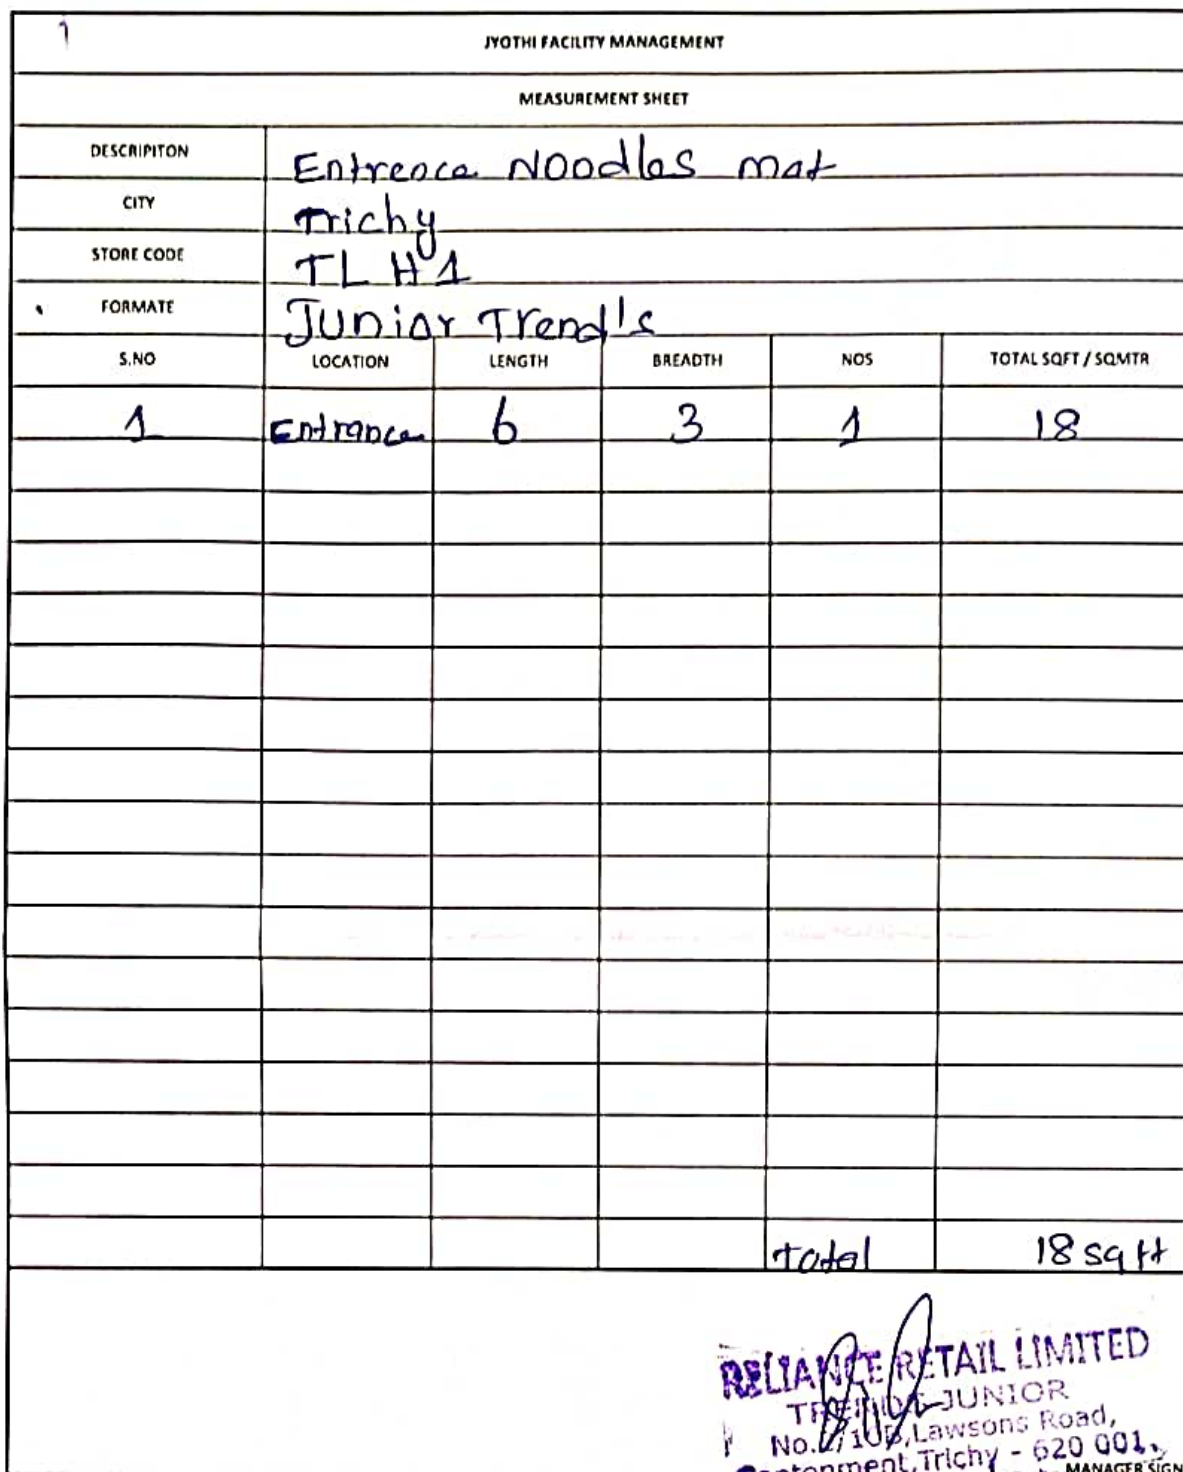 1
JYOTHI FACILITY MANAGEMENT
MEASUREMENT SHEET
DESCRIPITON Entrence Noodles mat
CITY Trichy
STORE CODE TLH1
FORMATE Junior Trend's
S.NO LOCATION LENGTH BREADTH NOS TOTAL SQFT / SQMTR
1 Entrance 6 3 1 18
Total 18 sq ft
RELIANCE RETAIL LIMITED
TRENDS JUNIOR
Lawsons Road,
Cantonment, Trichy - 620 001.
MANAGER SIGN